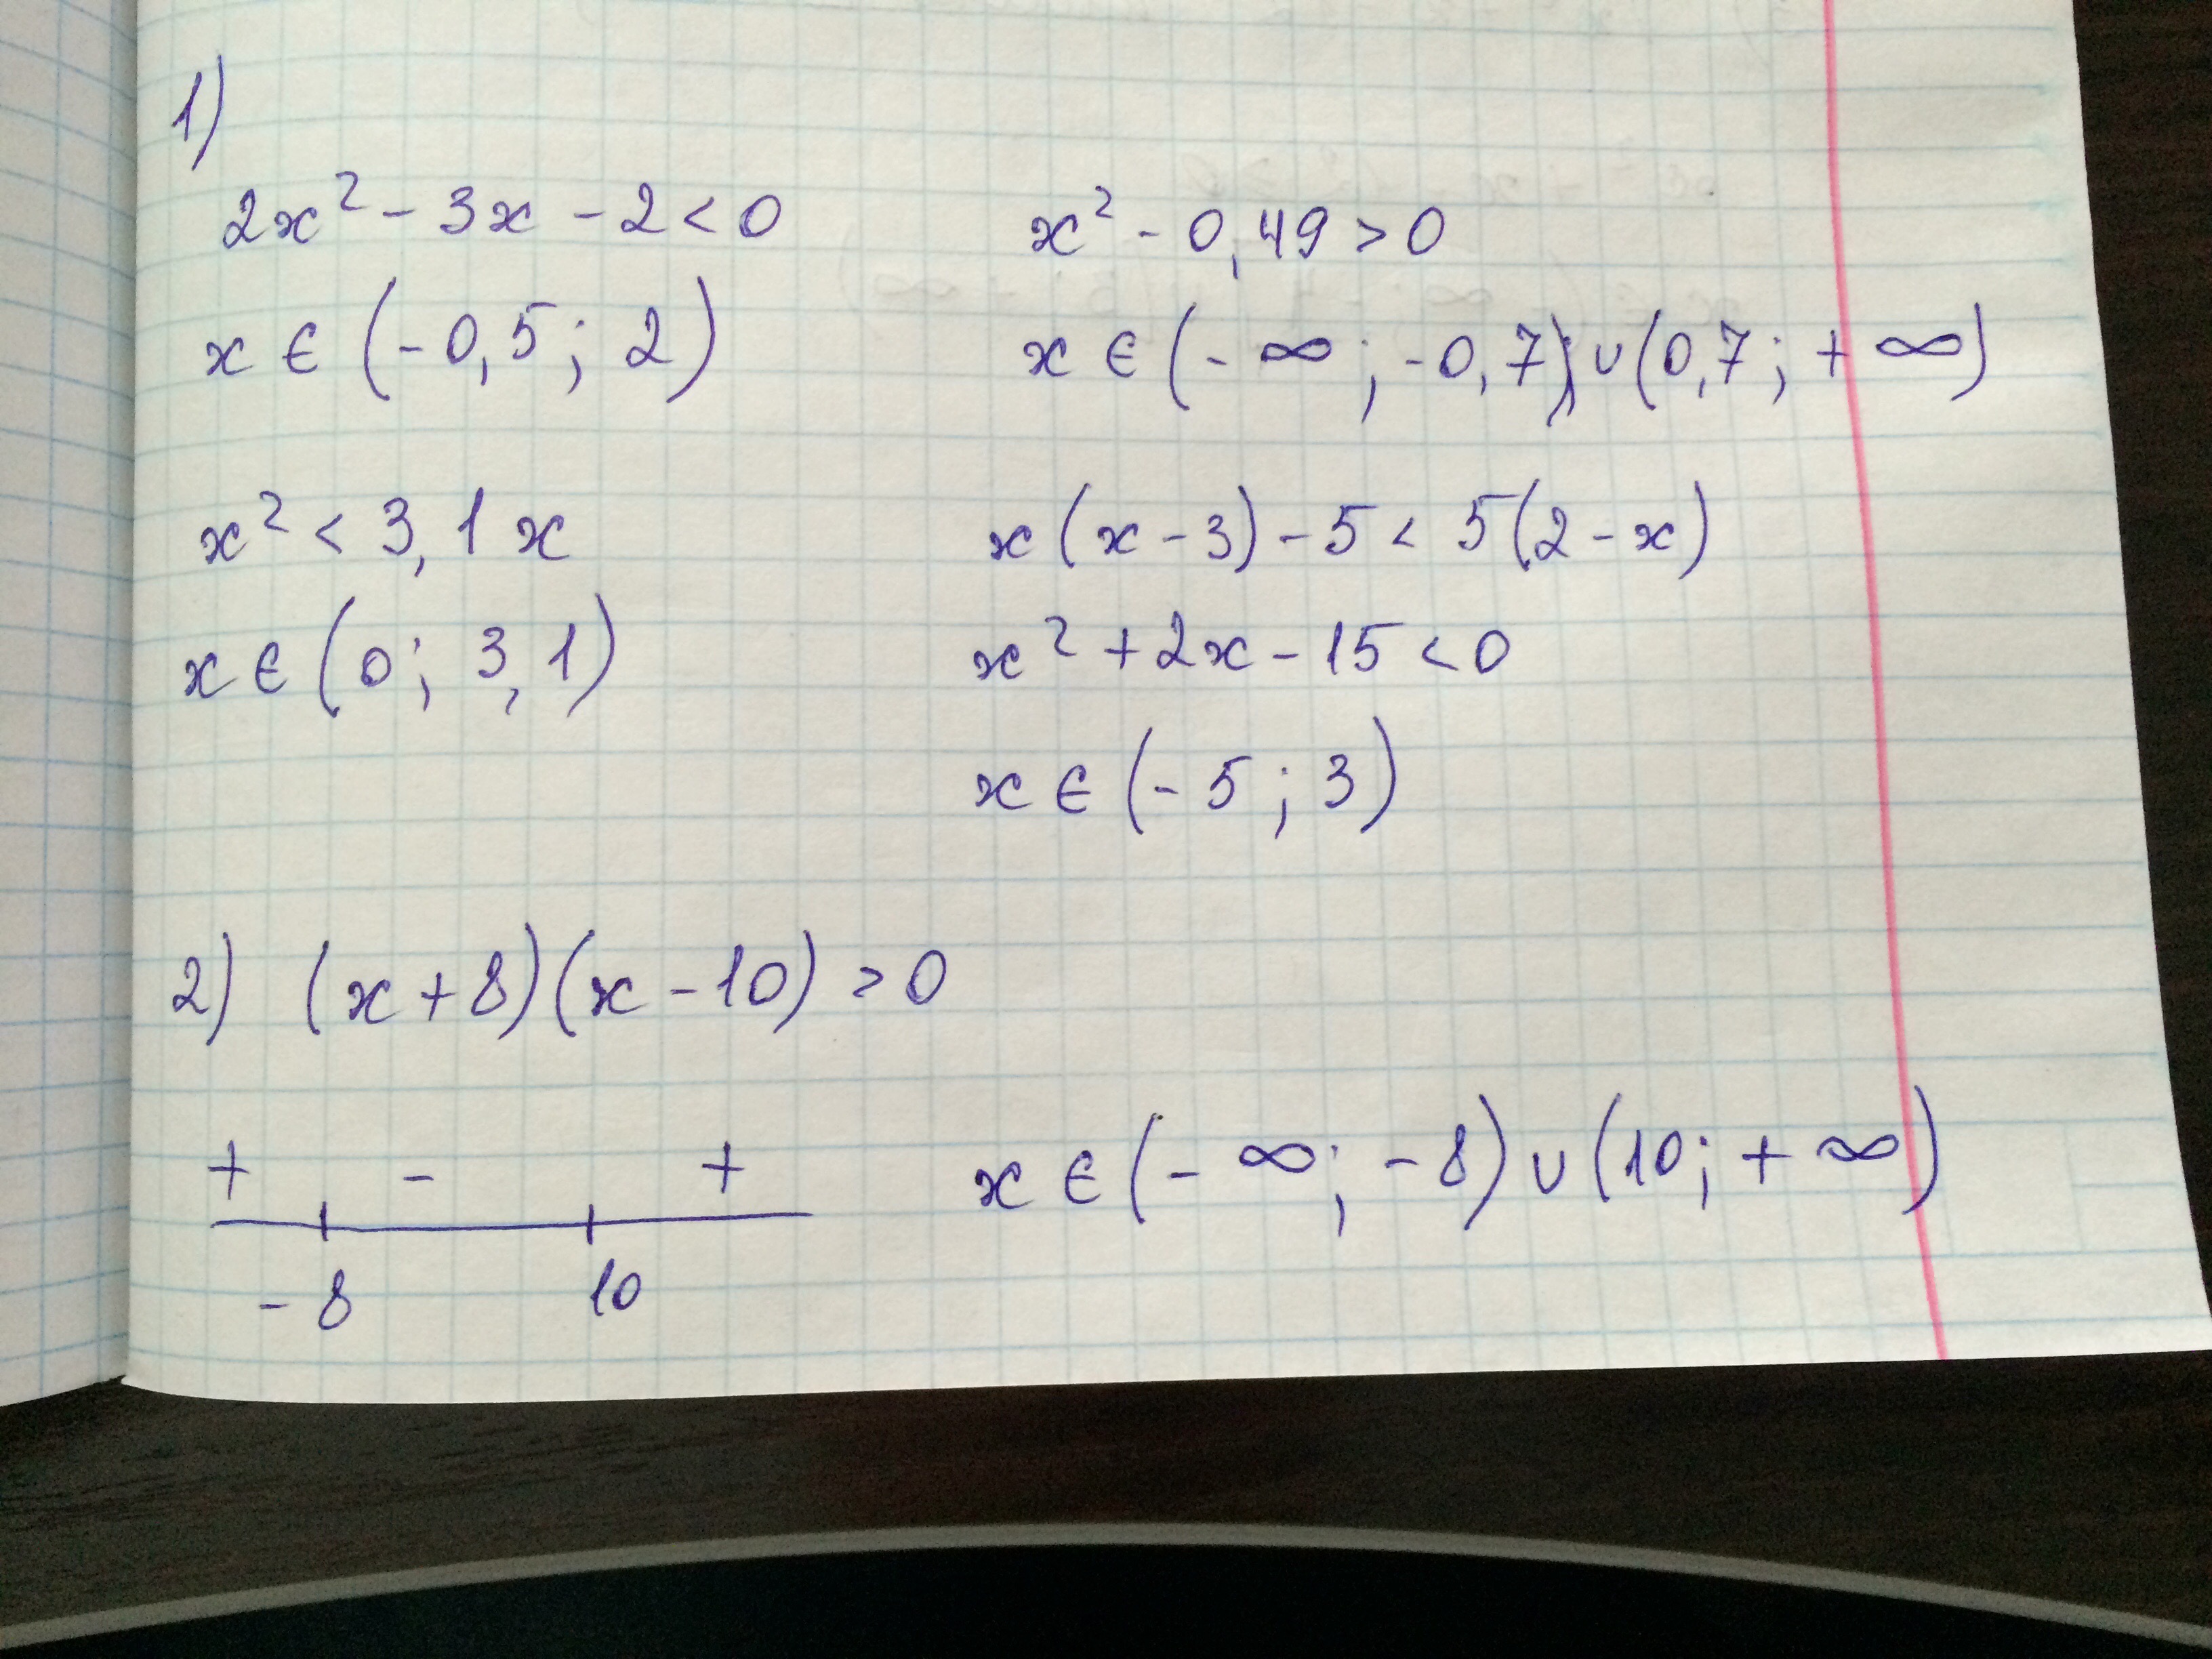 1)
2x² - 3x - 2 < 0
x ∈ (-0,5; 2)
x² - 0,49 > 0
x ∈ (-∞; -0,7) ∪ (0,7; +∞)
x² < 3,1x
x ∈ (0; 3,1)
x(x-3) - 5 < 5(2-x)
x² + 2x - 15 < 0
x ∈ (-5; 3)
2) (x+8)(x-10) > 0
+ - +
-8 10
x ∈ (-∞; -8) ∪ (10; +∞)